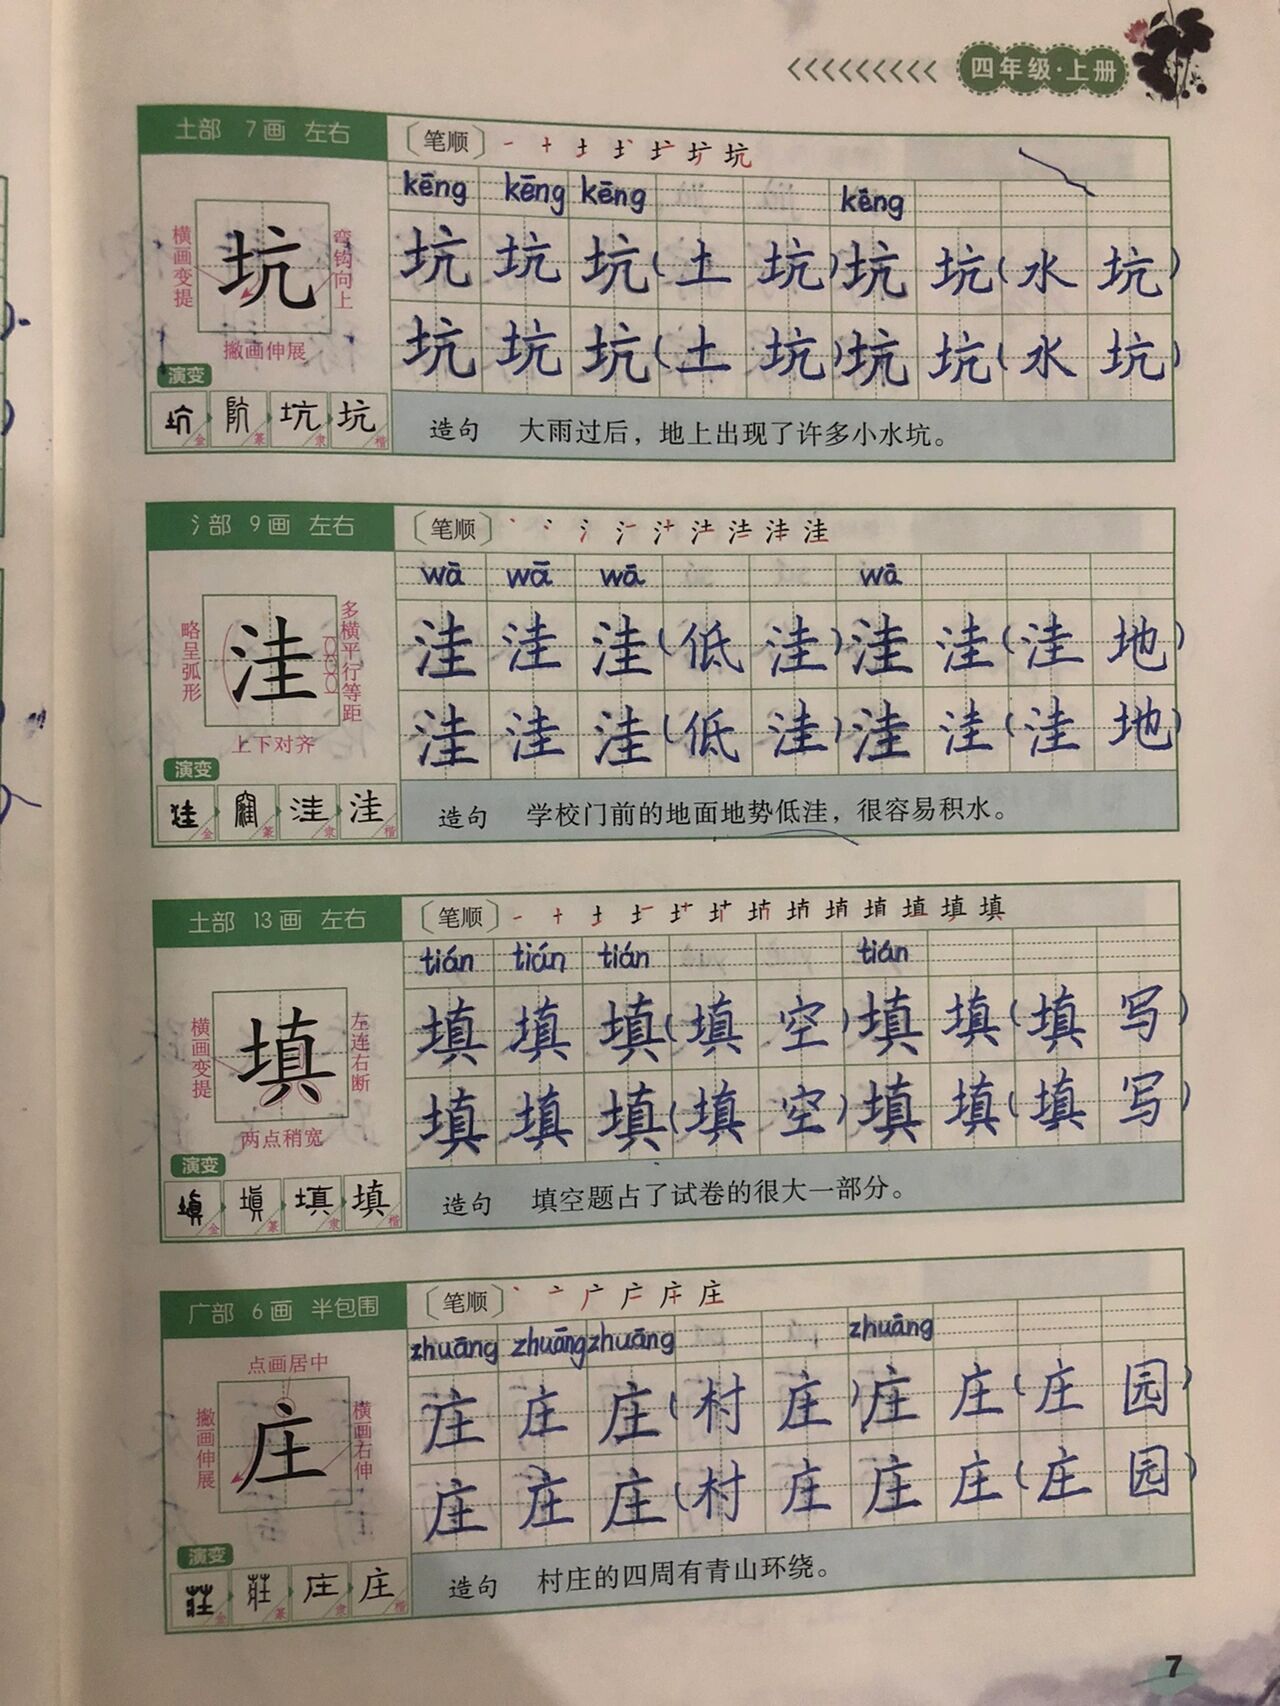 四年级·上册
土部 7画 左右
〔笔顺〕
kēng kēng kēng kēng
横画变提
弯钩向上
撇画伸展
坑
坑 坑 坑(土 坑)坑 坑(水 坑)
坑 坑 坑(土 坑)坑 坑(水 坑)
演变
金 篆 隶 楷
造句 大雨过后，地上出现了许多小水坑。
氵部 9画 左右
〔笔顺〕
wā wā wā wā
略呈弧形
多横平行等距
上下对齐
洼
洼 洼 洼(低 洼)洼 洼(洼 地)
洼 洼 洼(低 洼)洼 洼(洼 地)
演变
金 篆 隶 楷
造句 学校门前的地面地势低洼，很容易积水。
土部 13画 左右
〔笔顺〕
tián tián tián tián
横画变提
左连右断
两点稍宽
填
填 填 填(填 空)填 填(填 写)
填 填 填(填 空)填 填(填 写)
演变
金 篆 隶 楷
造句 填空题占了试卷的很大一部分。
广部 6画 半包围
〔笔顺〕
zhuāng zhuāng zhuāng zhuāng
点画居中
撇画伸展
横画右伸
庄
庄 庄 庄(村 庄)庄 庄(庄 园)
庄 庄 庄(村 庄 庄 庄(庄 园)
演变
金 篆 隶 楷
造句 村庄的四周有青山环绕。
7